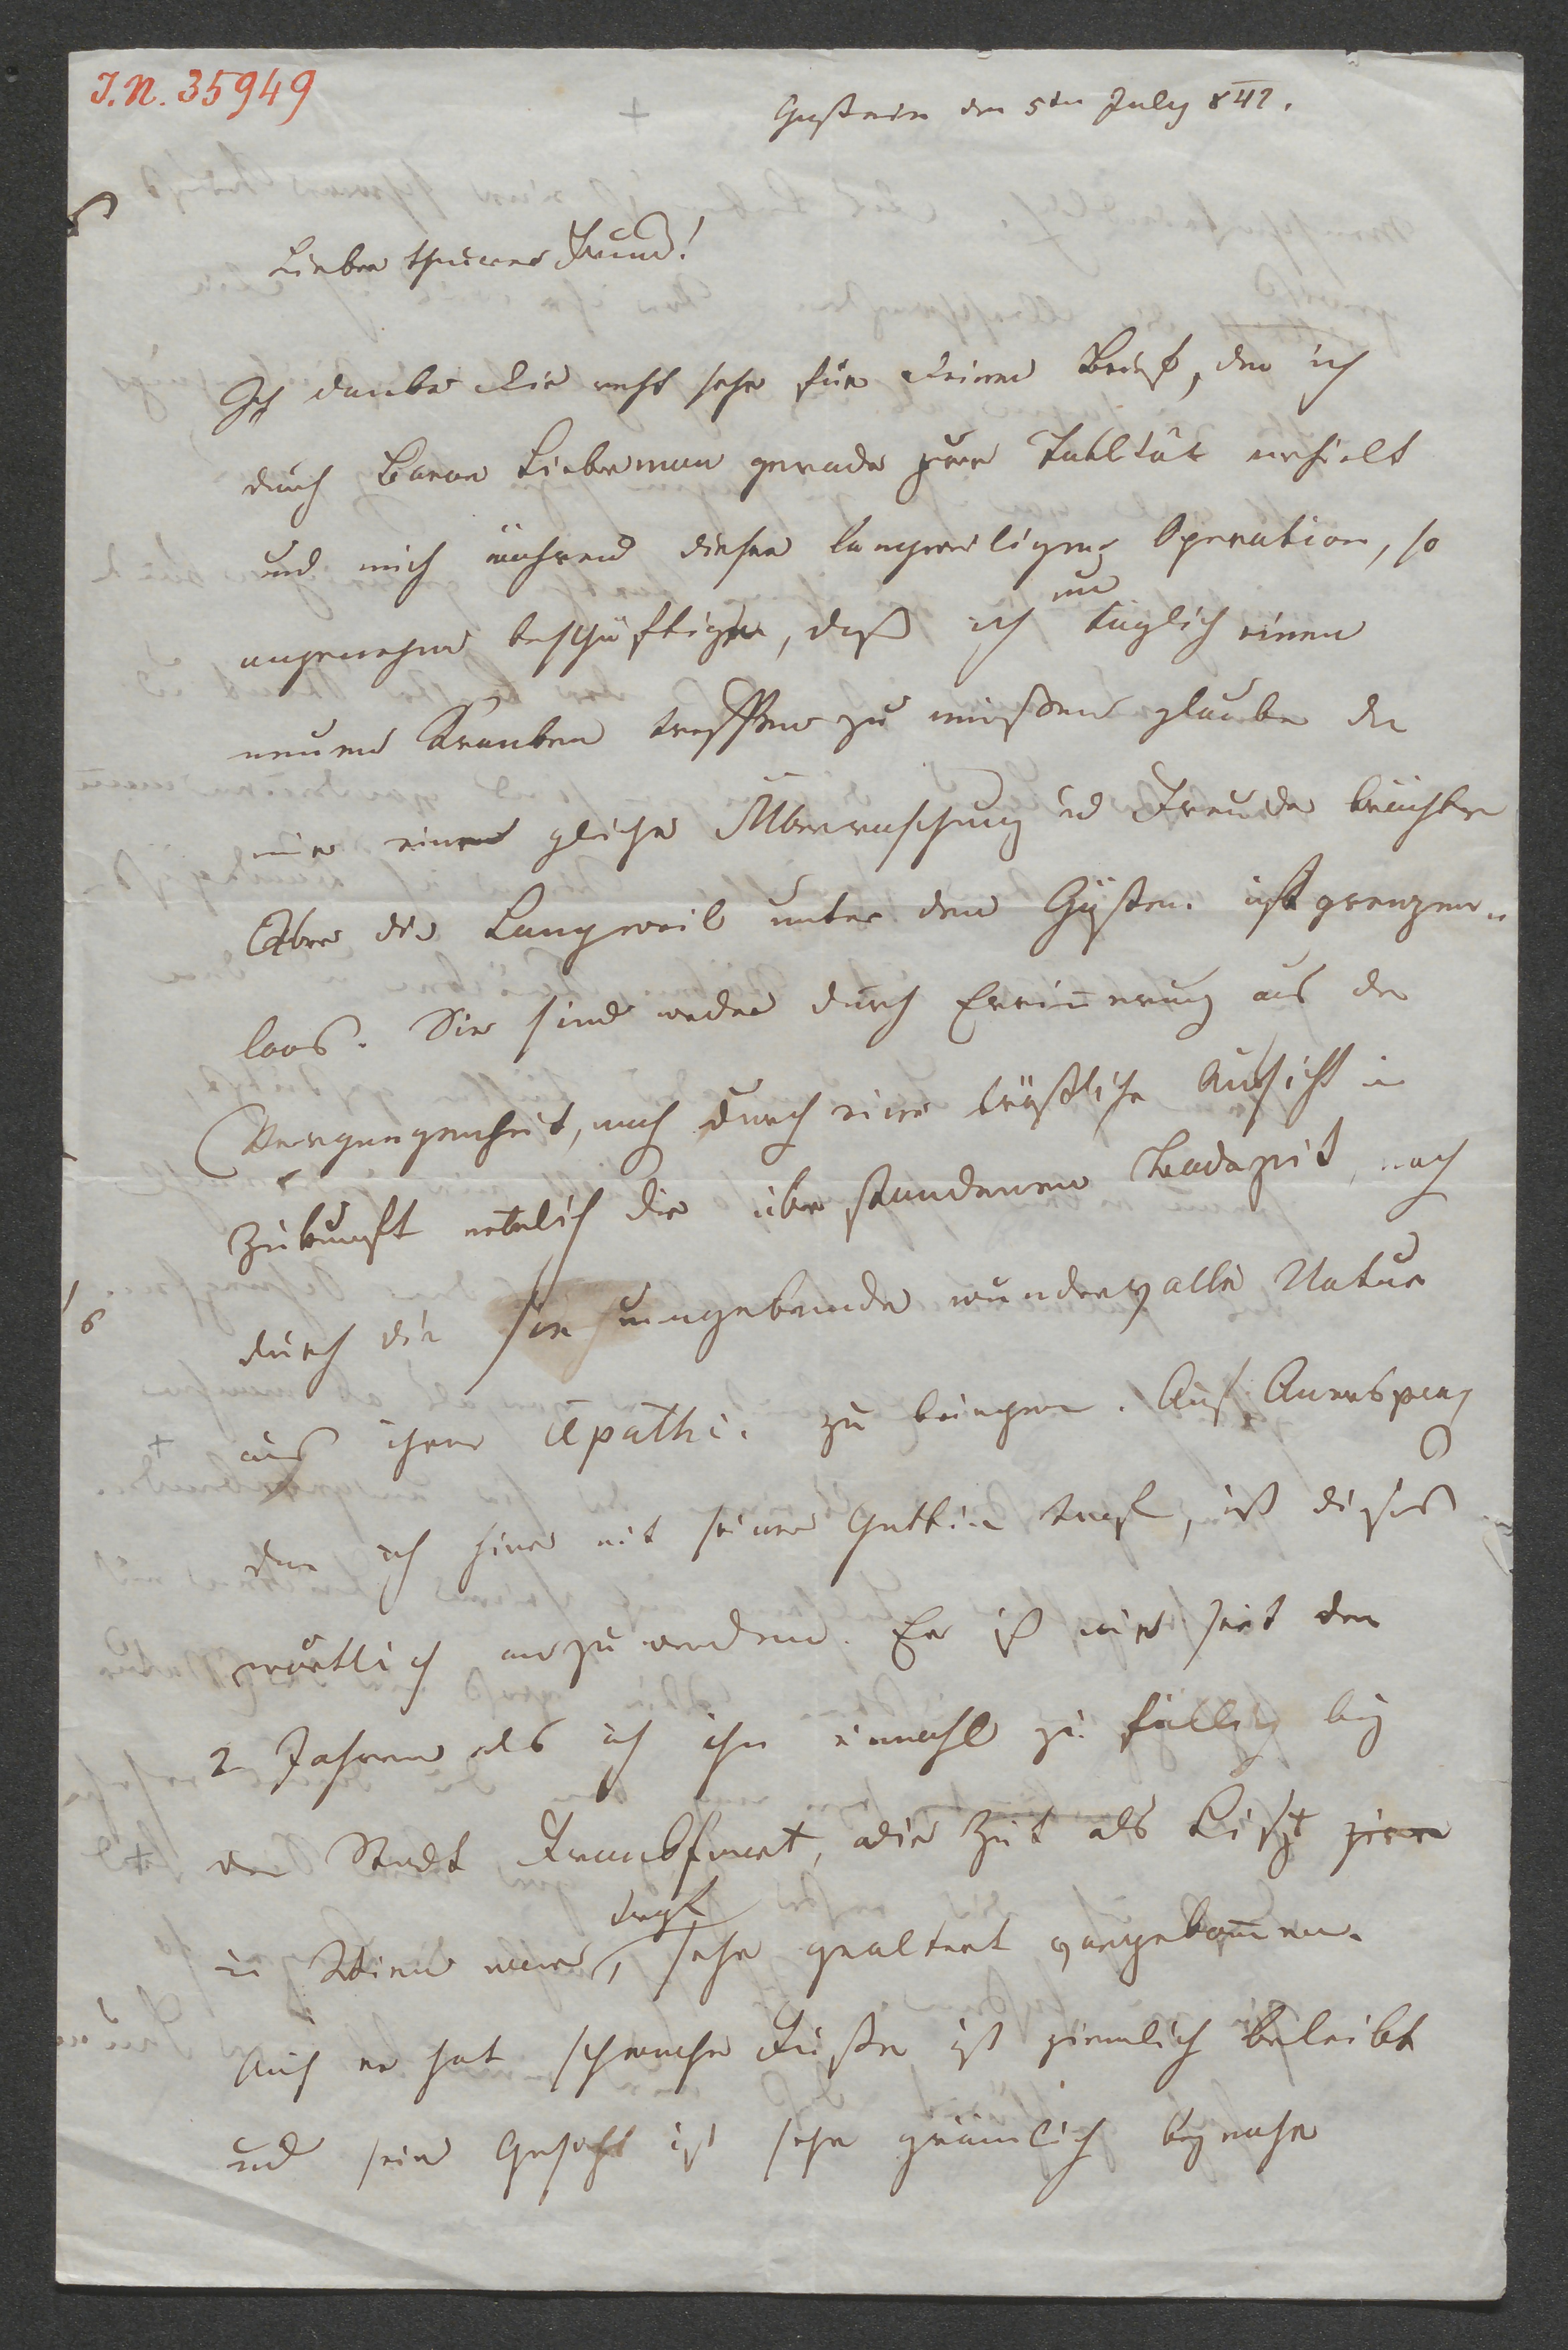 I.N. 35949
Gastein den 5ten July 842.
Lieber theurer Freund!
Ich danke Dir recht sehr für Deinen Brief, den ich
durch Baron Lieberman gerade zur Tabldût erhielt
und mich während dieser langweiligen Operation, so
angenehm beschäftigte, daß ich nun täglich einen
neuen Kranken treffen zu müßen glaube der
mir eine gleiche Überraschung ud Freude brächte
Aber die Langweil unter den Gästen ist grenzen„
loos. Sie sind weder durch Erinnerung aus der
Vergangenheit, noch durch eine tröstliche Aussicht in
Zukunft nemlich die überstandenen Badezeit, noch
durch die sie umgebende wundervolle Natur
aus ihrer Apathie zu bringen. Auf Auersperg
den ich hier mit seiner Gattin traf, ist dieses
wörtlich anzuwenden. Er ist mir seit den
2 Jahren als ich ihn einmahl zufällig bey
der Stadt Frankfurt, a die Zeit als Liszt
in Wien war, traf sehr gealtert vorgekommen.
Auch er hat schwache Füße ist ziemlich beleibt
ud sein Gesicht ist sehr grämlich beynahe